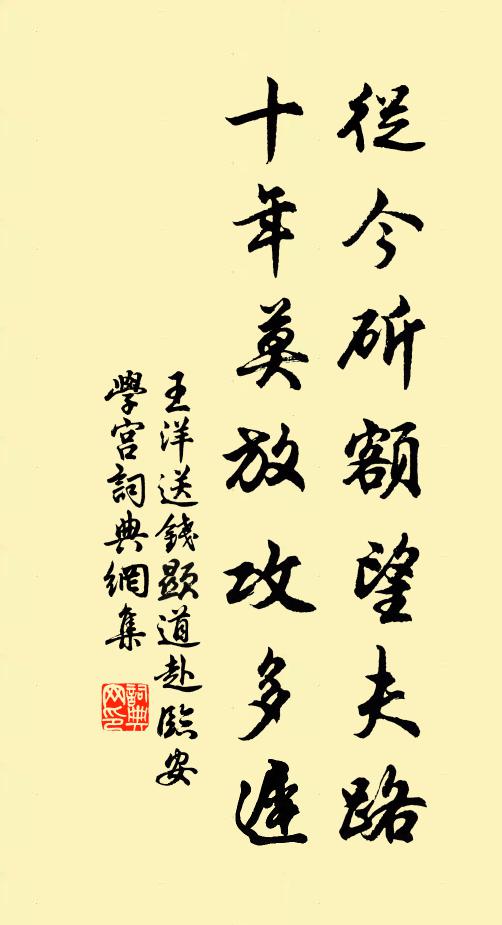 從今斫額望夫路
十年莫放攻多遲
王洋送錢顯道赴臨安
學宮詞典網集
詞典
网印